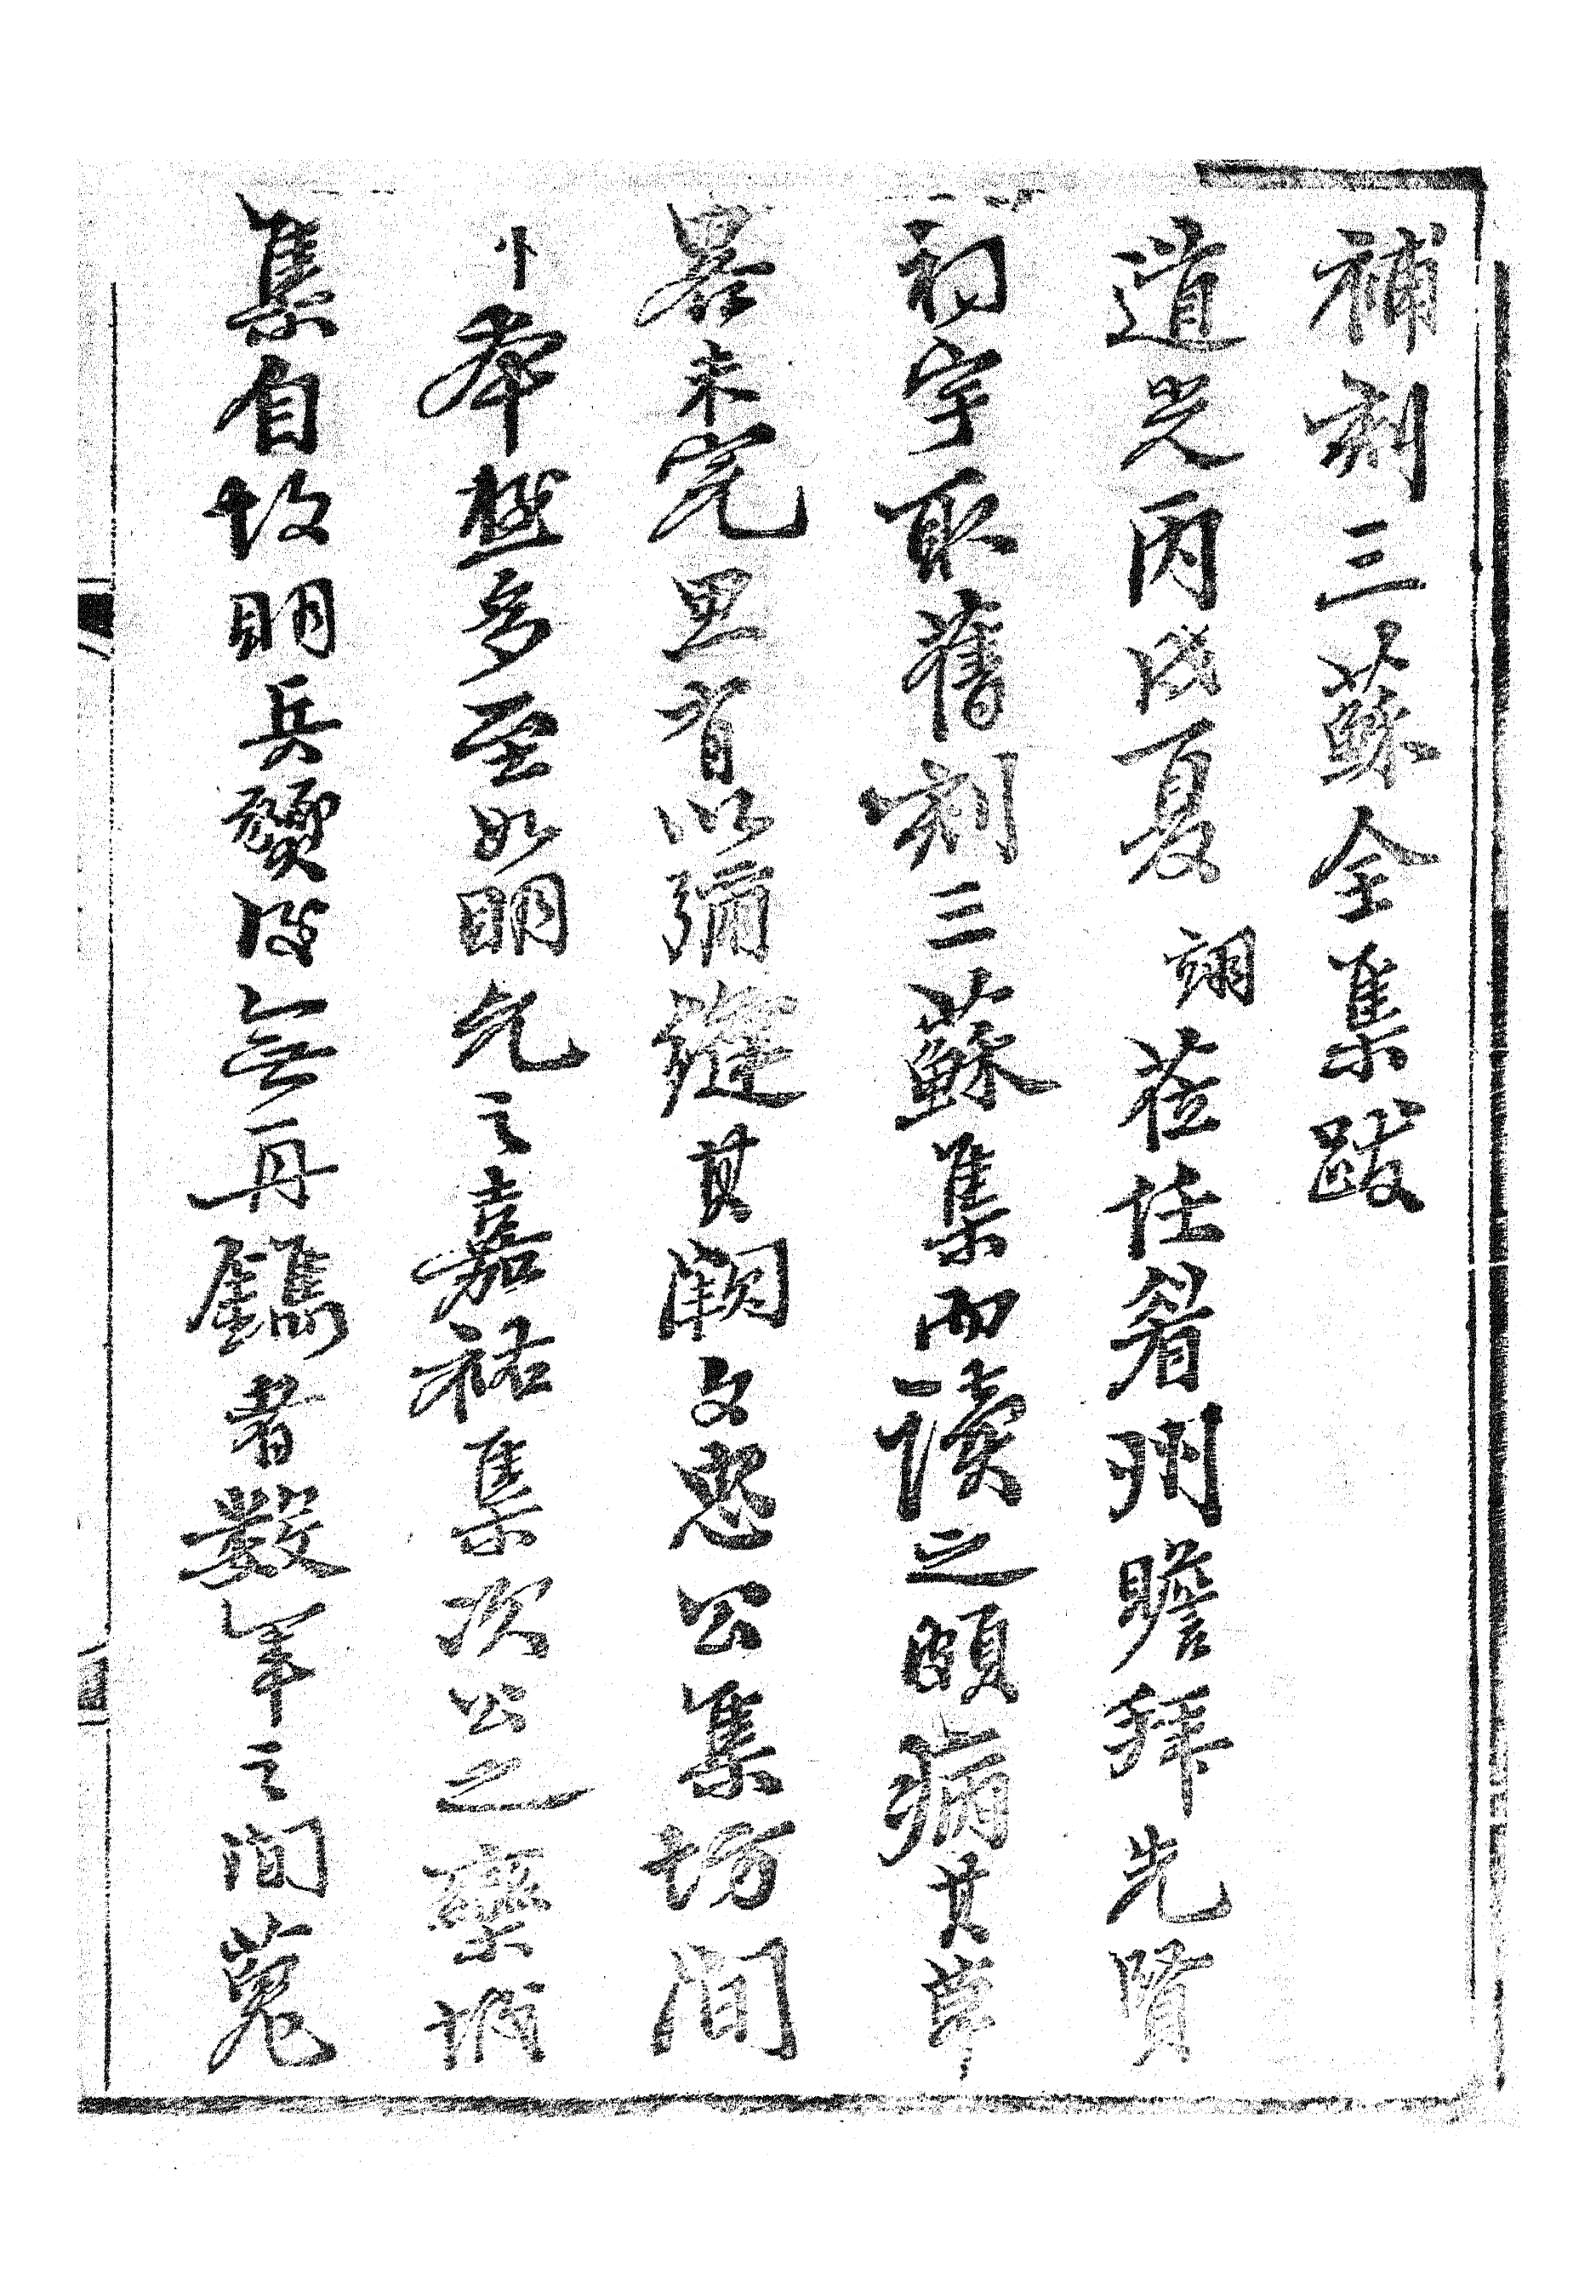 補刻三蘇全集跋
道光丙戌夏翊莅任眉州瞻拜先賢
祠宇取舊刻三蘇集而讀之頗病其草
畧未完思有以彌縫其闕文忠公集坊間
卟本盛多至如明允之嘉祐集次公之欒城
集自故明兵燹後無再鐫者數年之間蒐